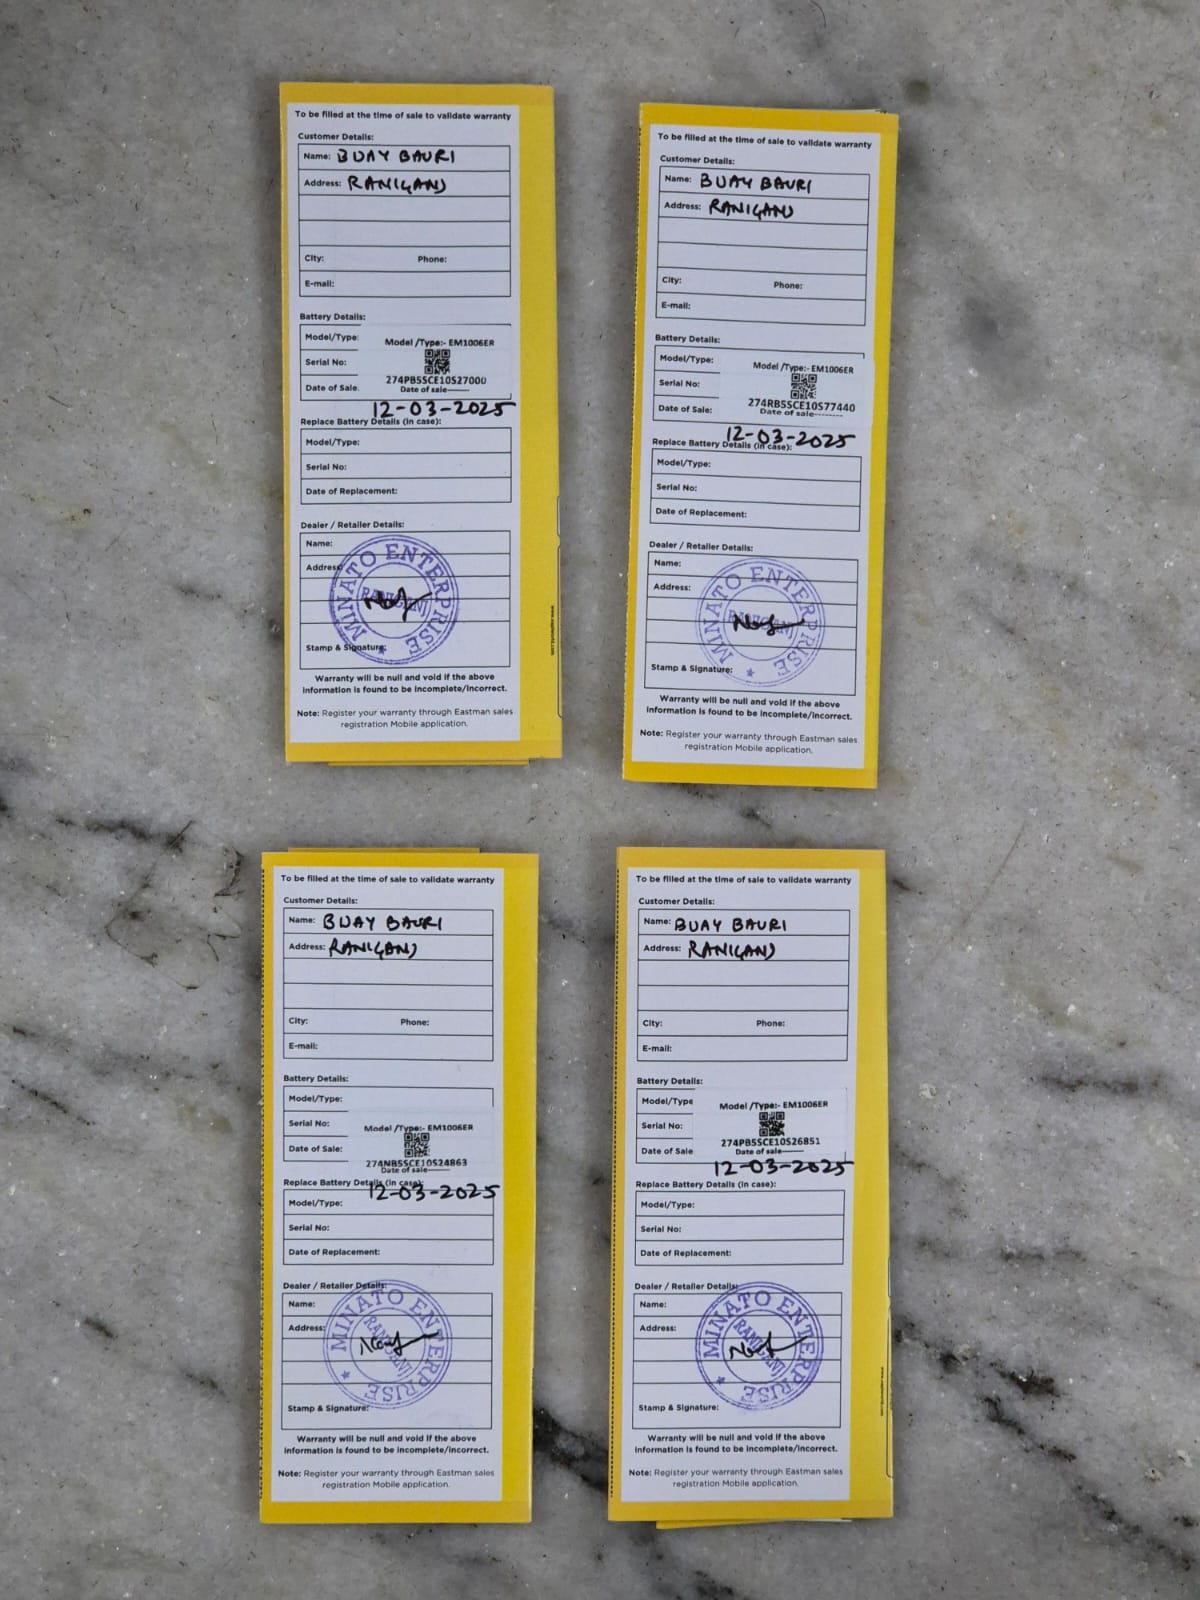 To be filled at the time of sale to validate warranty
Customer Details:
Name: BIJAY BAURI
Address: RANIGANJ
City: Phone:
E-mail:
Battery Details:
Model/Type: Model /Type:- EM1006ER
Serial No:
274PB5SCE10S27000
Date of Sale. Date of sale------
12-03-2025
Replace Battery Details (in case):
Model/Type:
Serial No:
Date of Replacement:
Dealer / Retailer Details:
Name:
Address:
MINATO ENTERPRISE
RANIGANJ
Stamp & Signature:
Warranty will be null and void if the above
information is found to be incomplete/incorrect.
Note: Register your warranty through Eastman sales
registration Mobile application.
To be filled at the time of sale to validate warranty
Customer Details:
Name: BIJAY BAURI
Address: RANIGANJ
City: Phone:
E-mail:
Battery Details:
Model/Type: Model /Type:- EM1006ER
Serial No:
274RB5SCE10S77440
Date of Sale: Date of sale--------
12-03-2025
Replace Battery Details (in case):
Model/Type:
Serial No:
Date of Replacement:
Dealer / Retailer Details:
Name:
Address:
MINATO ENTERPRISE
RANIGANJ
Stamp & Signature:
Warranty will be null and void if the above
information is found to be incomplete/incorrect.
Note: Register your warranty through Eastman sales
registration Mobile application.
To be filled at the time of sale to validate warranty
Customer Details:
Name: BIJAY BAURI
Address: RANIGANJ
City: Phone:
E-mail:
Battery Details:
Model/Type:
Serial No: Model /Type:- EM1006ER
Date of Sale:
274NB5SCE10S24863
Date of sale------
Replace Battery Details (in case):
12-03-2025
Model/Type:
Serial No:
Date of Replacement:
Dealer / Retailer Details:
Name:
Address:
MINATO ENTERPRISE
RANIGANJ
Stamp & Signature:
Warranty will be null and void if the above
information is found to be incomplete/incorrect.
Note: Register your warranty through Eastman sales
registration Mobile application.
To be filled at the time of sale to validate warranty
Customer Details:
Name: BIJAY BAURI
Address: RANIGANJ
City: Phone:
E-mail:
Battery Details:
Model/Type Model /Type:- EM1006ER
Serial No:
274PB5SCE10S26851
Date of Sale Date of sale------
12-03-2025
Replace Battery Details (in case):
Model/Type:
Serial No:
Date of Replacement:
Dealer / Retailer Details:
Name:
Address:
MINATO ENTERPRISE
RANIGANJ
Stamp & Signature:
Warranty will be null and void if the above
information is found to be incomplete/incorrect.
Note: Register your warranty through Eastman sales
registration Mobile application.